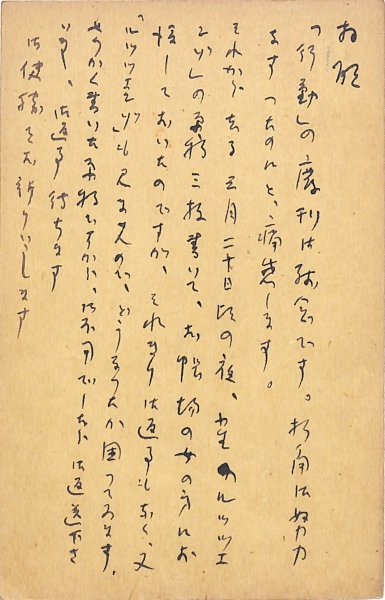 お願
「行動」の廃刊は残念です。折角御努力
なすつたのにと、痛感します。
それから去る 月二十日頃の夜、
の原稿三枚書いて、お帳場の女の方にお
渡しておいたのですが、それきり御返事もなく、又
も見ませんので、どうなつたか困つております。
せつかく書いた原稿ですから、御不用でしたら御返送下さ
い 、御返事待ちます
御健勝をお祈りいたします